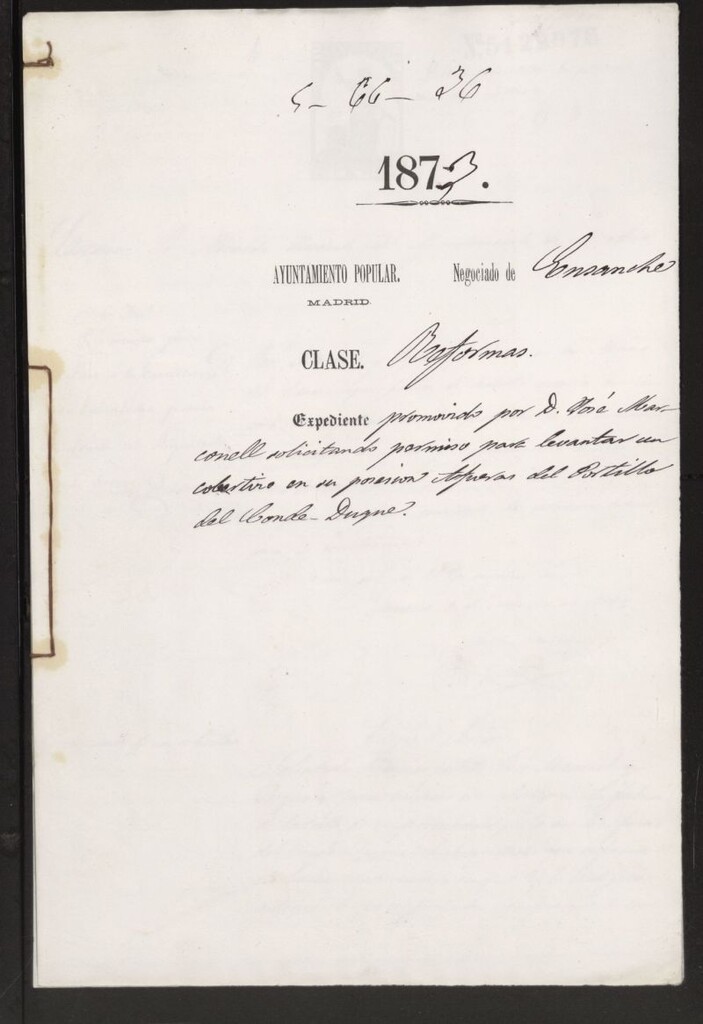 5 - 66 - 36
1873.
AYUNTAMIENTO POPULAR. Negociado de Ensanche
MADRID.
CLASE. Reformas.
Expediente promovido por D. José Mar-
conell solicitando permiso para levantar un
cobertizo en su posesion Afueras del Portillo
del Conde-Duque.